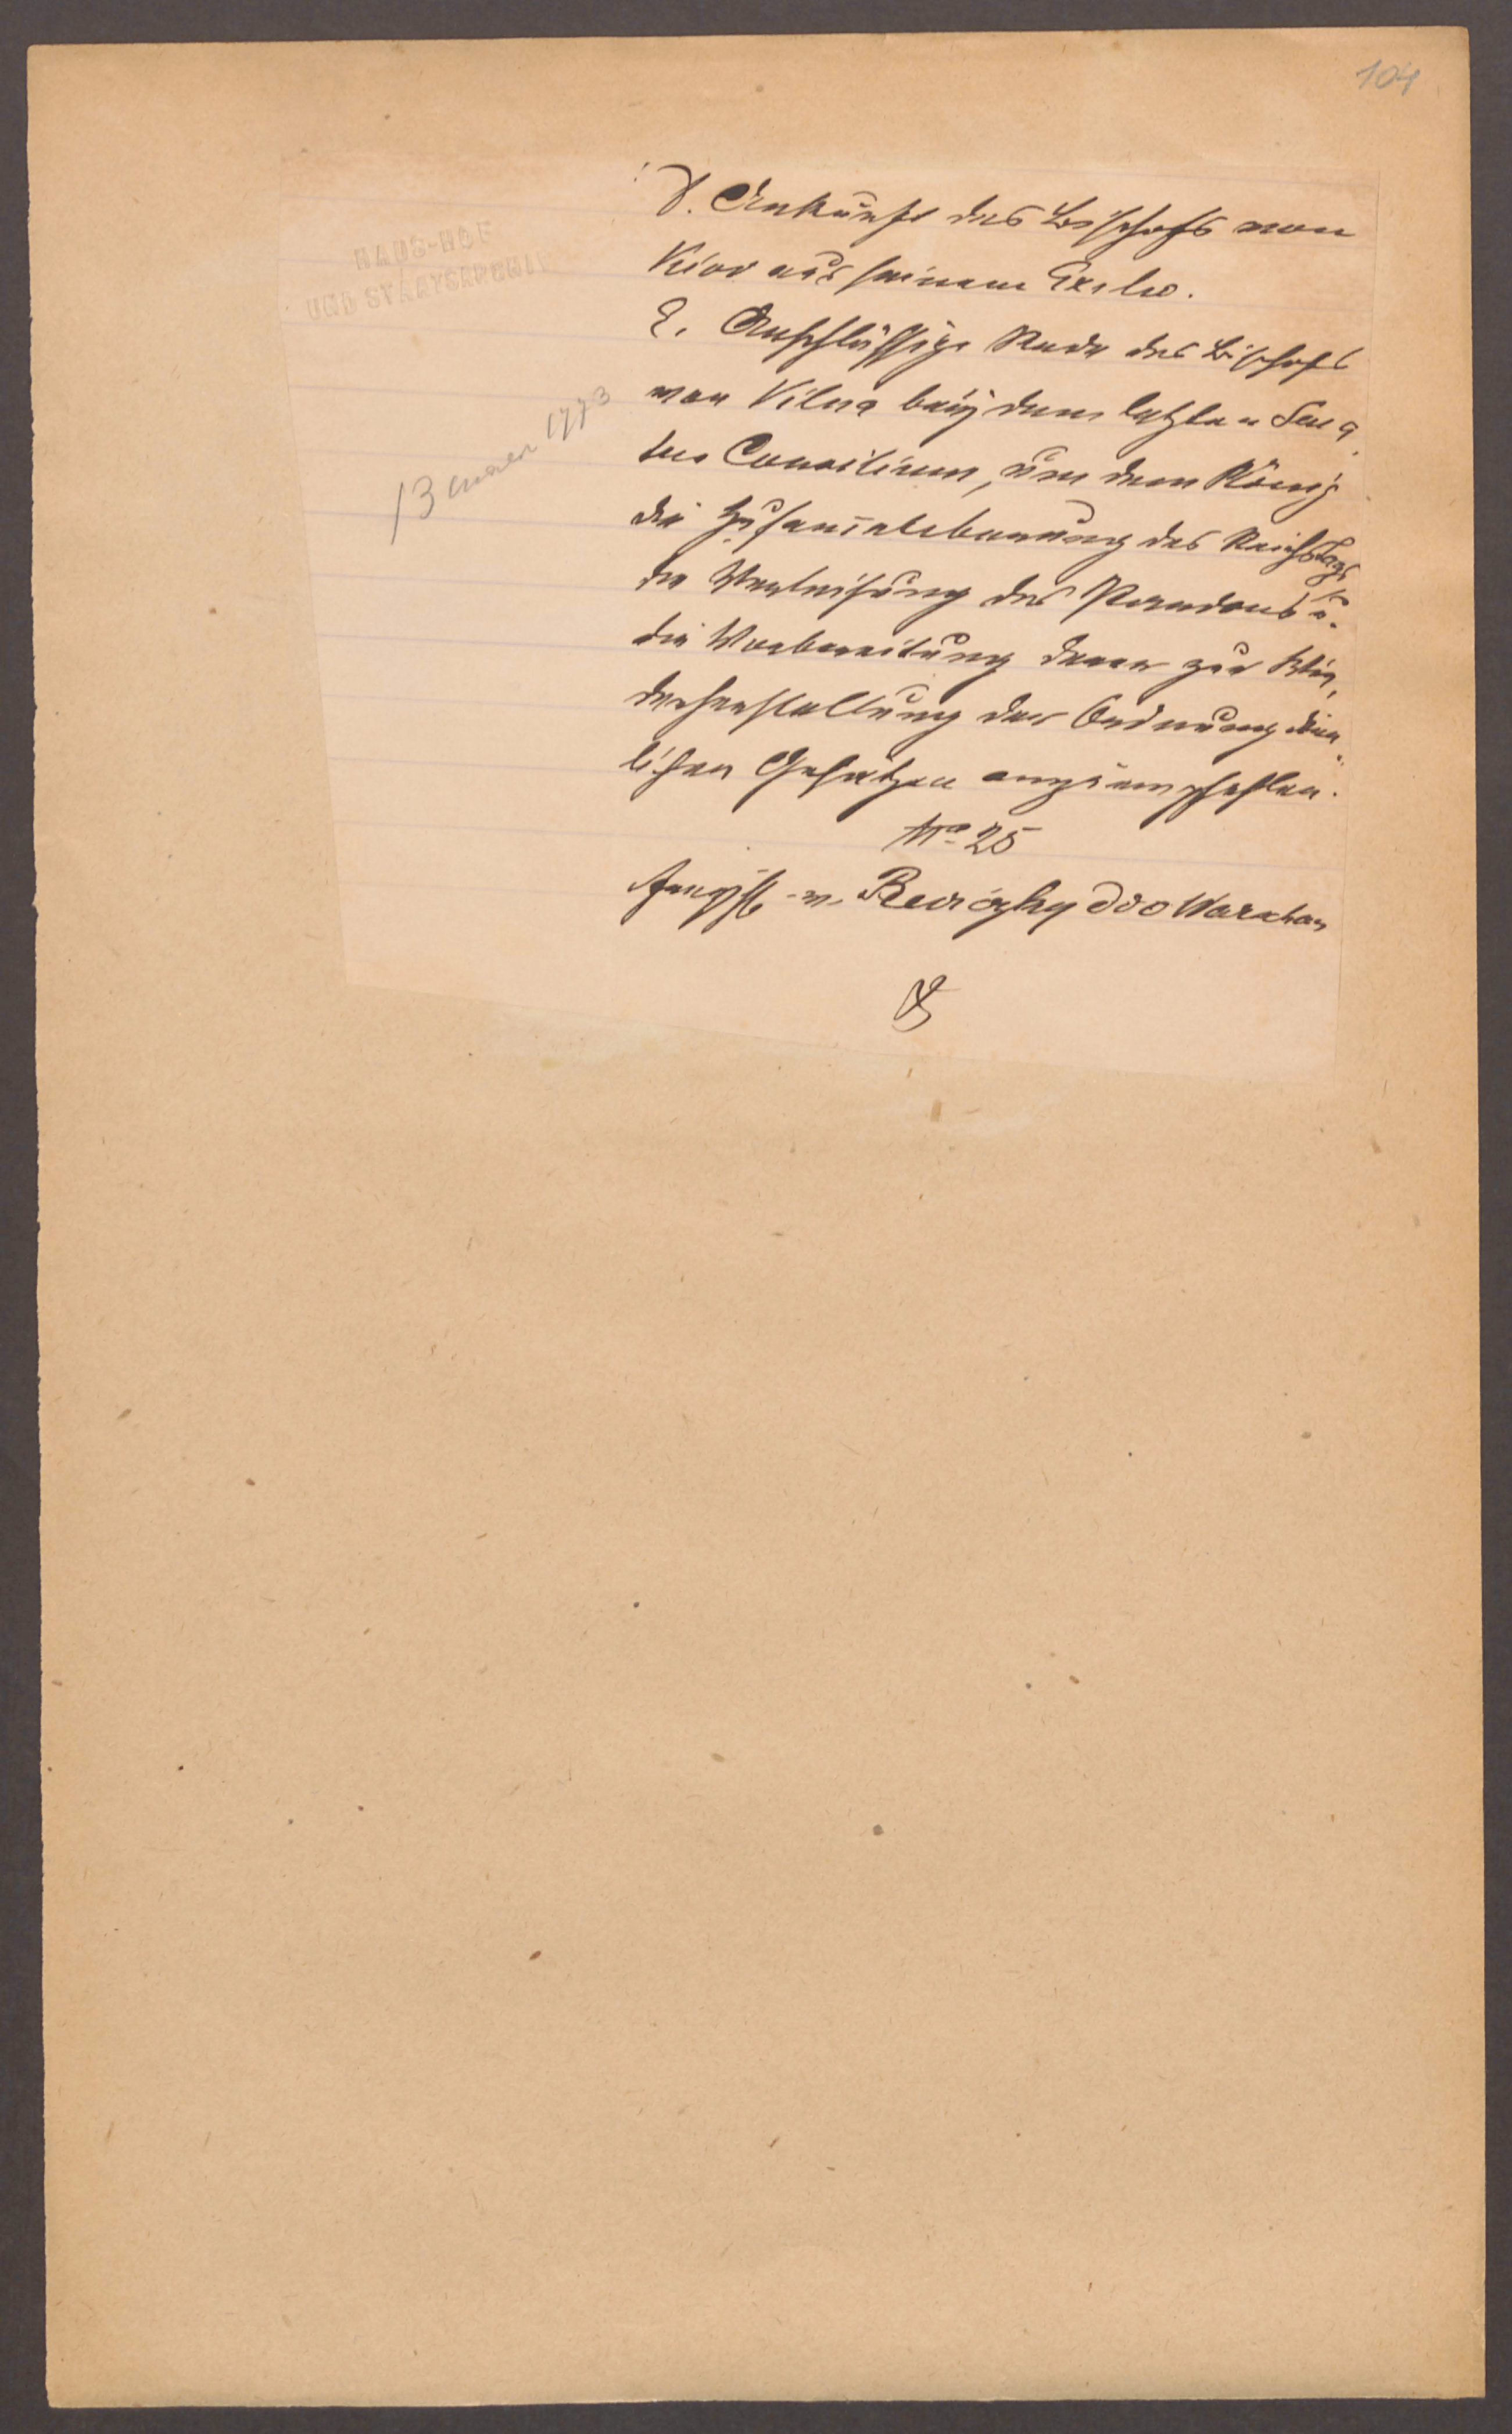 104
HAUS-HOF
UND STAATSARCHIV
13 1773
d. Ankunft des Bischofs von
Kiov aus seinem Exilio.
e. Anschlüssige Rede des Bischofs
von Vilna beÿ dem letzten Sena
tus Consilium, um dem König
die Zusam̄enberuffung des Reichstags
die u.
die Vorbereitung deren zur Wie,
derherstellung der Ordnung dien
lichen Gesetzen anzuempfehlen.
No 25
v. Reviczky ddo Warschau